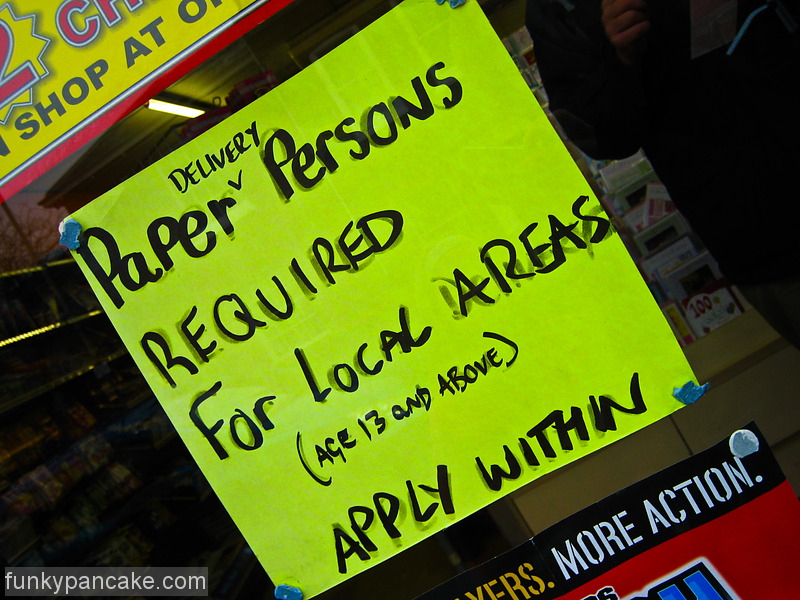 SHOP AT
DELIVERY
Paper ˅ Persons
REQUIRED
For Local AREAS
(AGE 13 and ABOVE)
APPLY WITHIN
100
MORE ACTION.
funkypancake.com